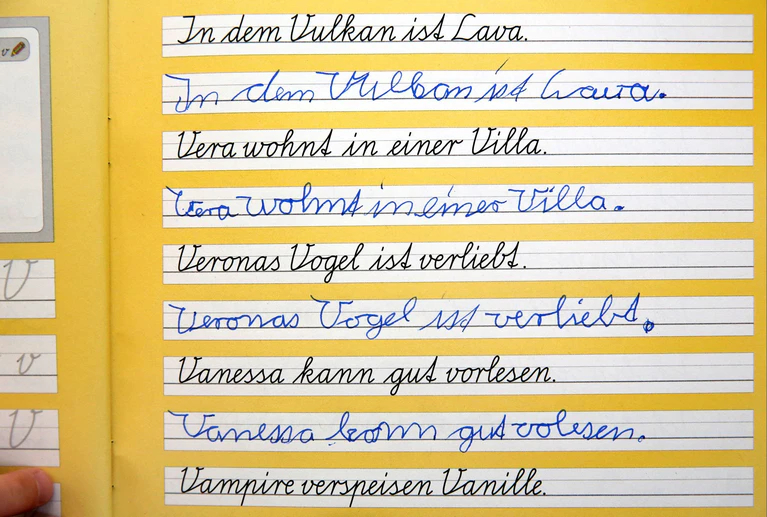 In dem Vulkan ist Lava.
In dem Vulkan ist Lava.
Vera wohnt in einer Villa.
Vera wohnt in einer Villa.
Veronas Vogel ist verliebt.
Veronas Vogel ist verliebt.
Vanessa kann gut vorlesen.
Vanessa kann gut volesen.
Vampire verspeisen Vanille.
v
V
v
V